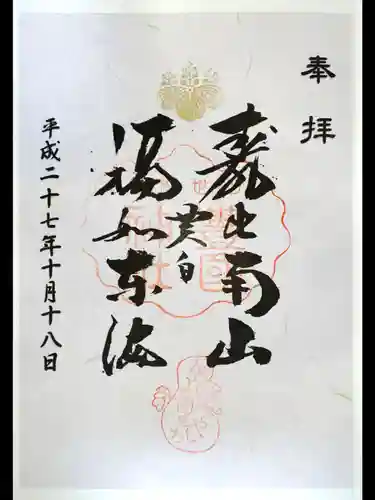 奉拝
壽比南山
福如东海
平成二十七年十月十八日